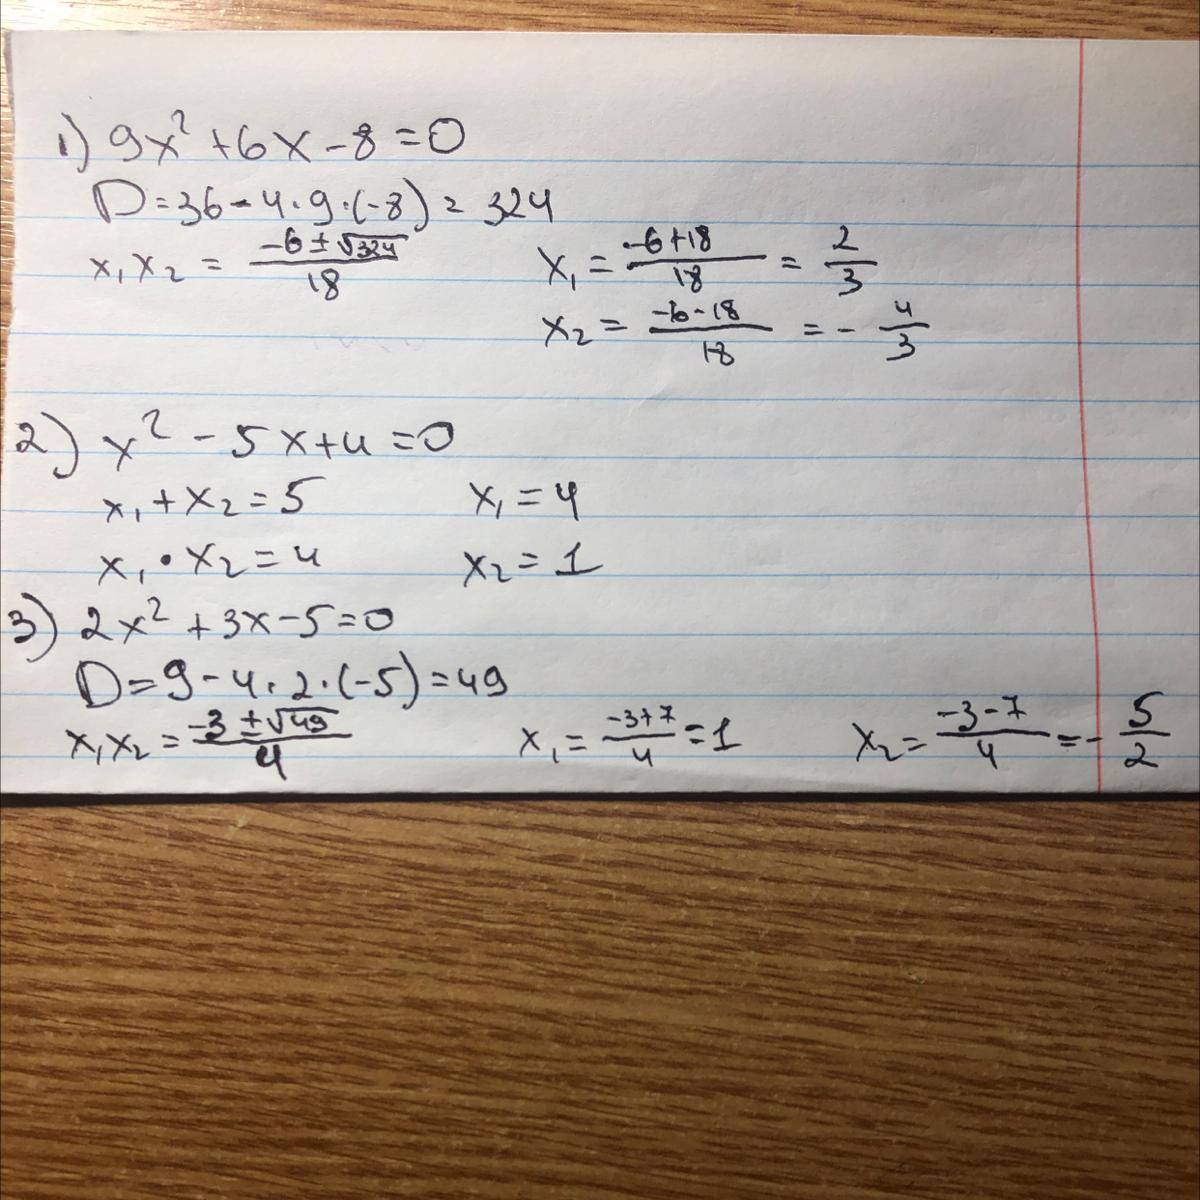 1) 9x² + 6x - 8 = 0
D = 36 - 4 · 9 · (-8) = 324
x₁ x₂ = (-6 ± √324)/18    x₁ = (-6 + 18)/18 = 2/3
x₂ = (-6 - 18)/18 = - 4/3
2) x² - 5x + 4 = 0
x₁ + x₂ = 5    x₁ = 4
x₁ · x₂ = 4    x₂ = 1
3) 2x² + 3x - 5 = 0
D = 9 - 4 · 2 · (-5) = 49
x₁ x₂ = (-3 ± √49)/4    x₁ = (-3 + 7)/4 = 1    x₂ = (-3 - 7)/4 = - 5/2